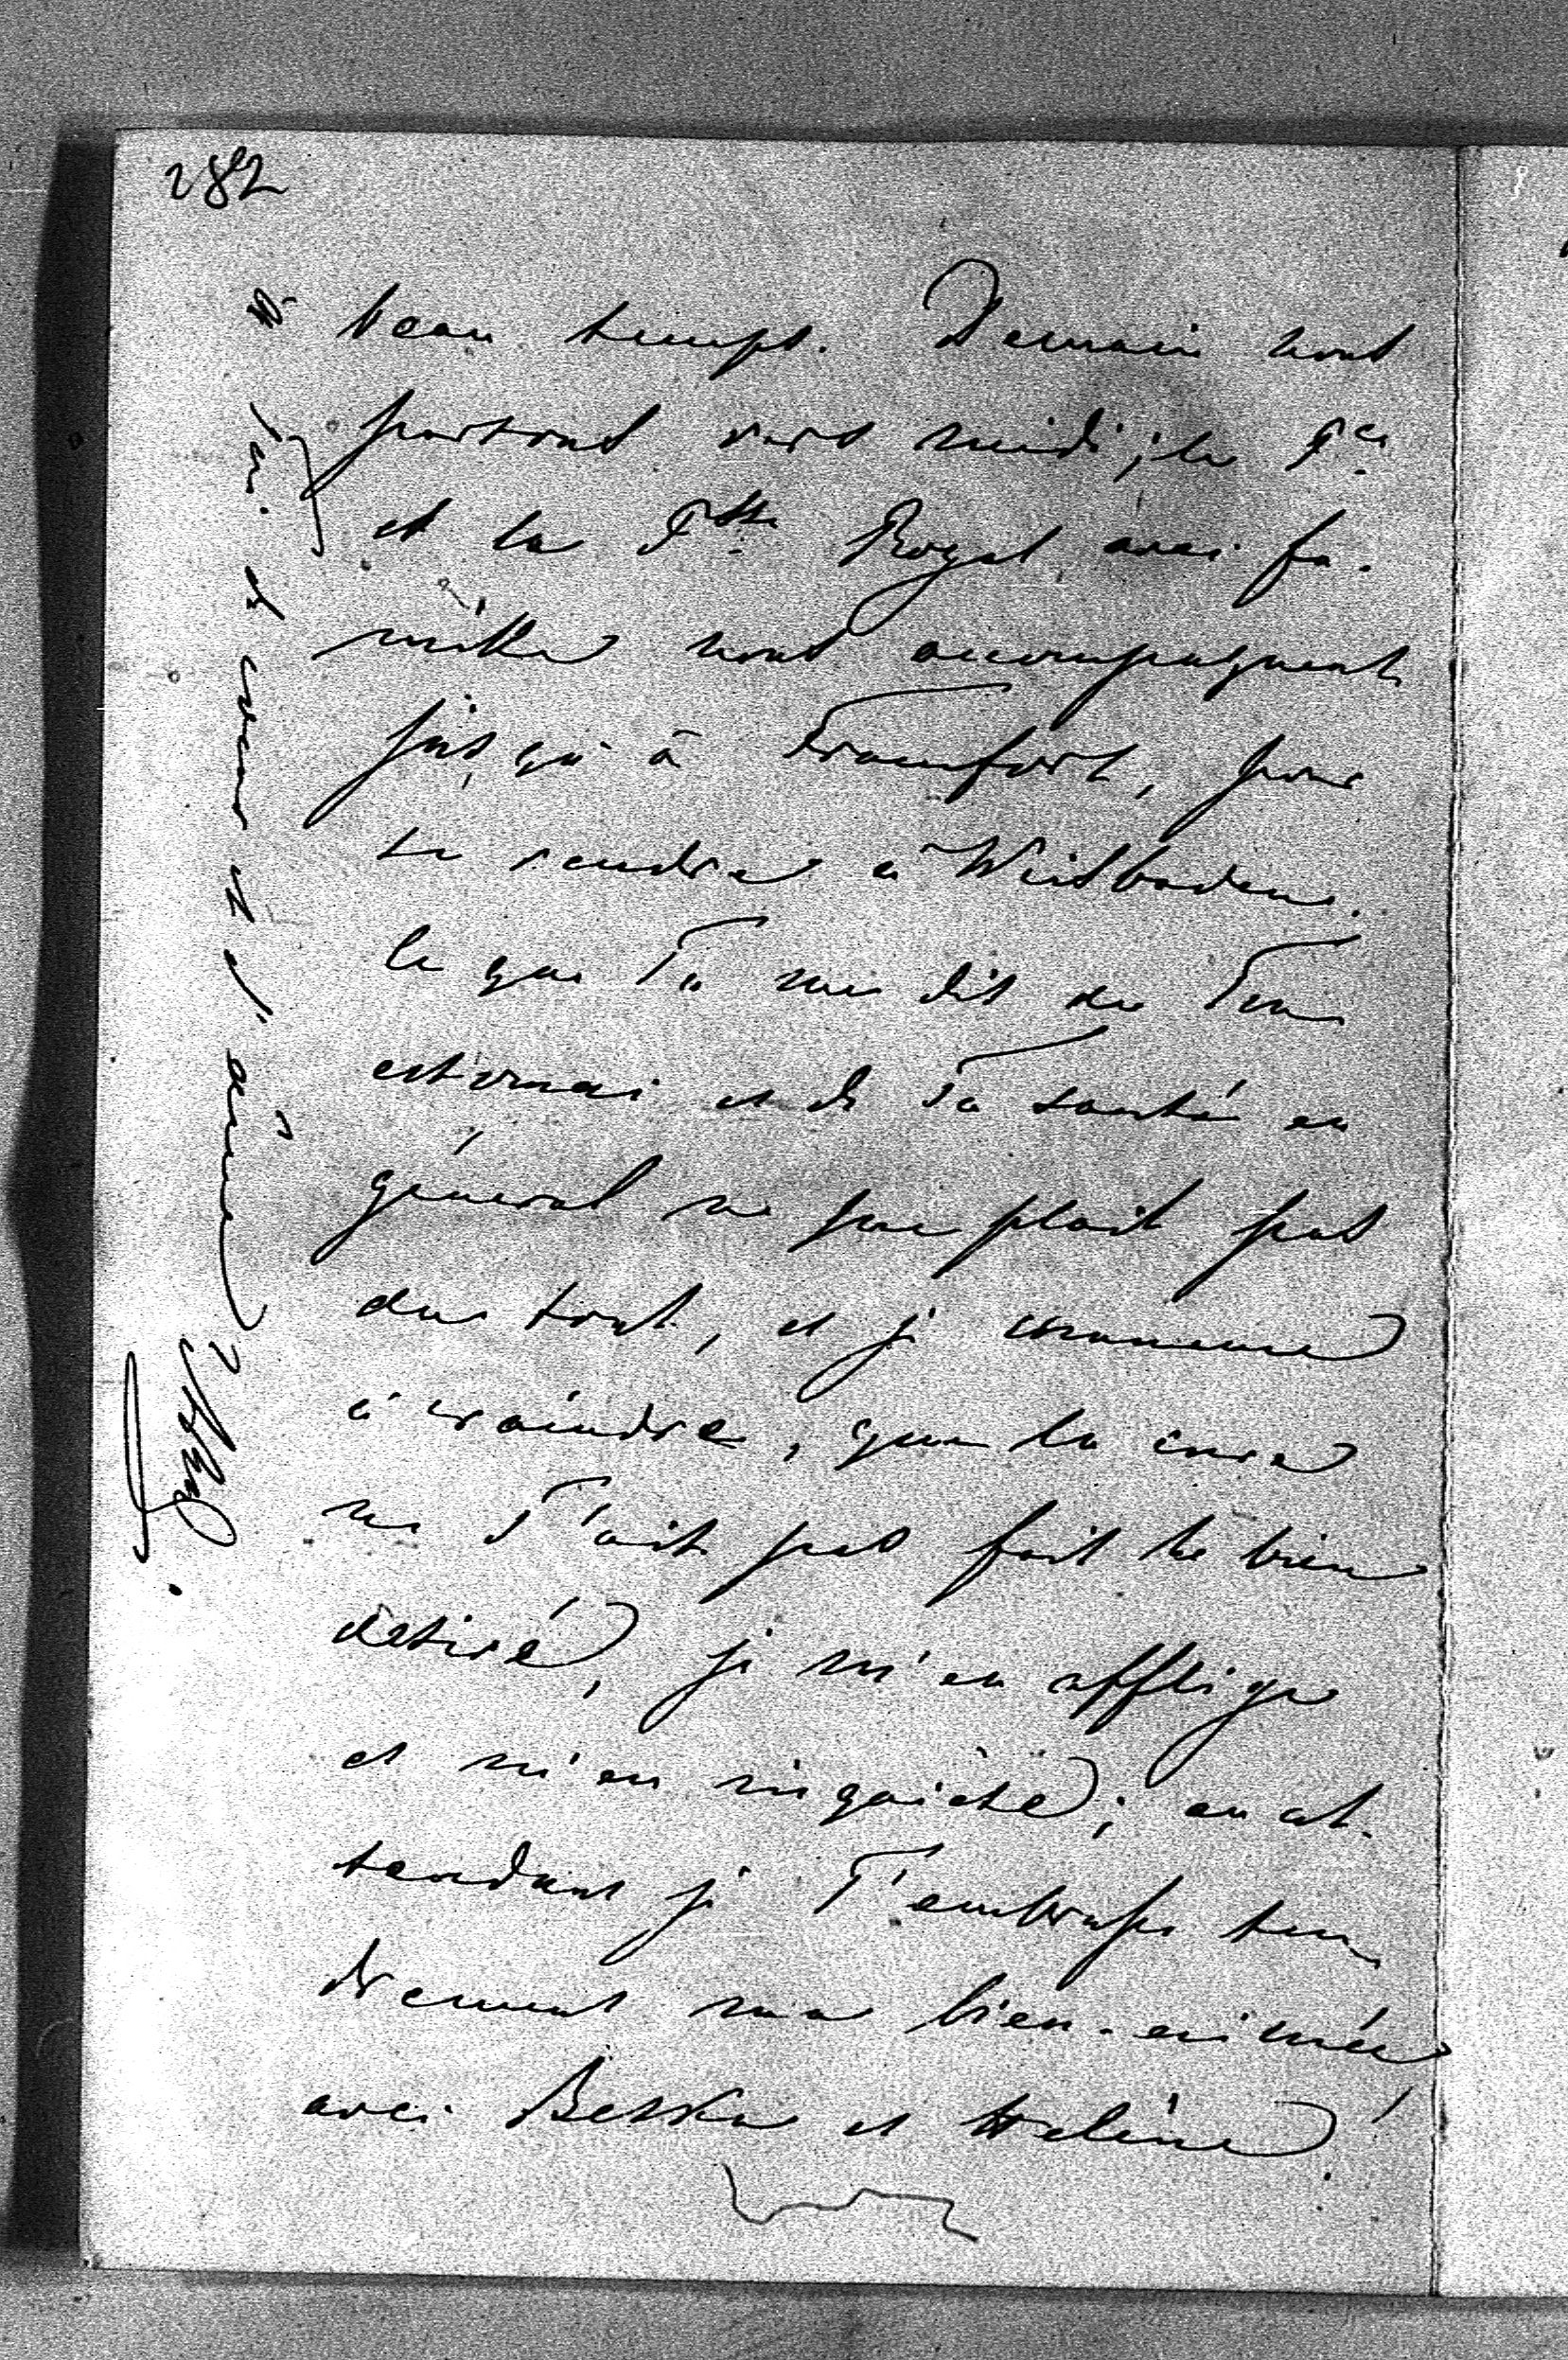 282
beau temps. Demain nous
partons vers midi; le Pce
et la Psse Royal avec fa-
mille nous accompagnent
jusqu'à Francfort, pour
se rendre à Wiesbaden.
Ce que Tu me dis de Ton
estomac et de Ta santé en
général ne me plait pas
du tout, et je commence
à craindre, que la cure
ne T'ait pas fait le bien
desiré, je m'en afflige
et m'en inquiète; en at-
tendant je T'embrasse ten-
drement ma bien-aimée
avec Betsi et Helène.